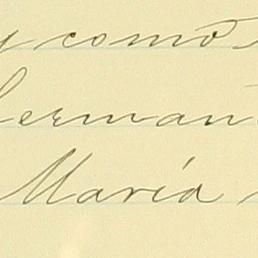 y como
German
Maria